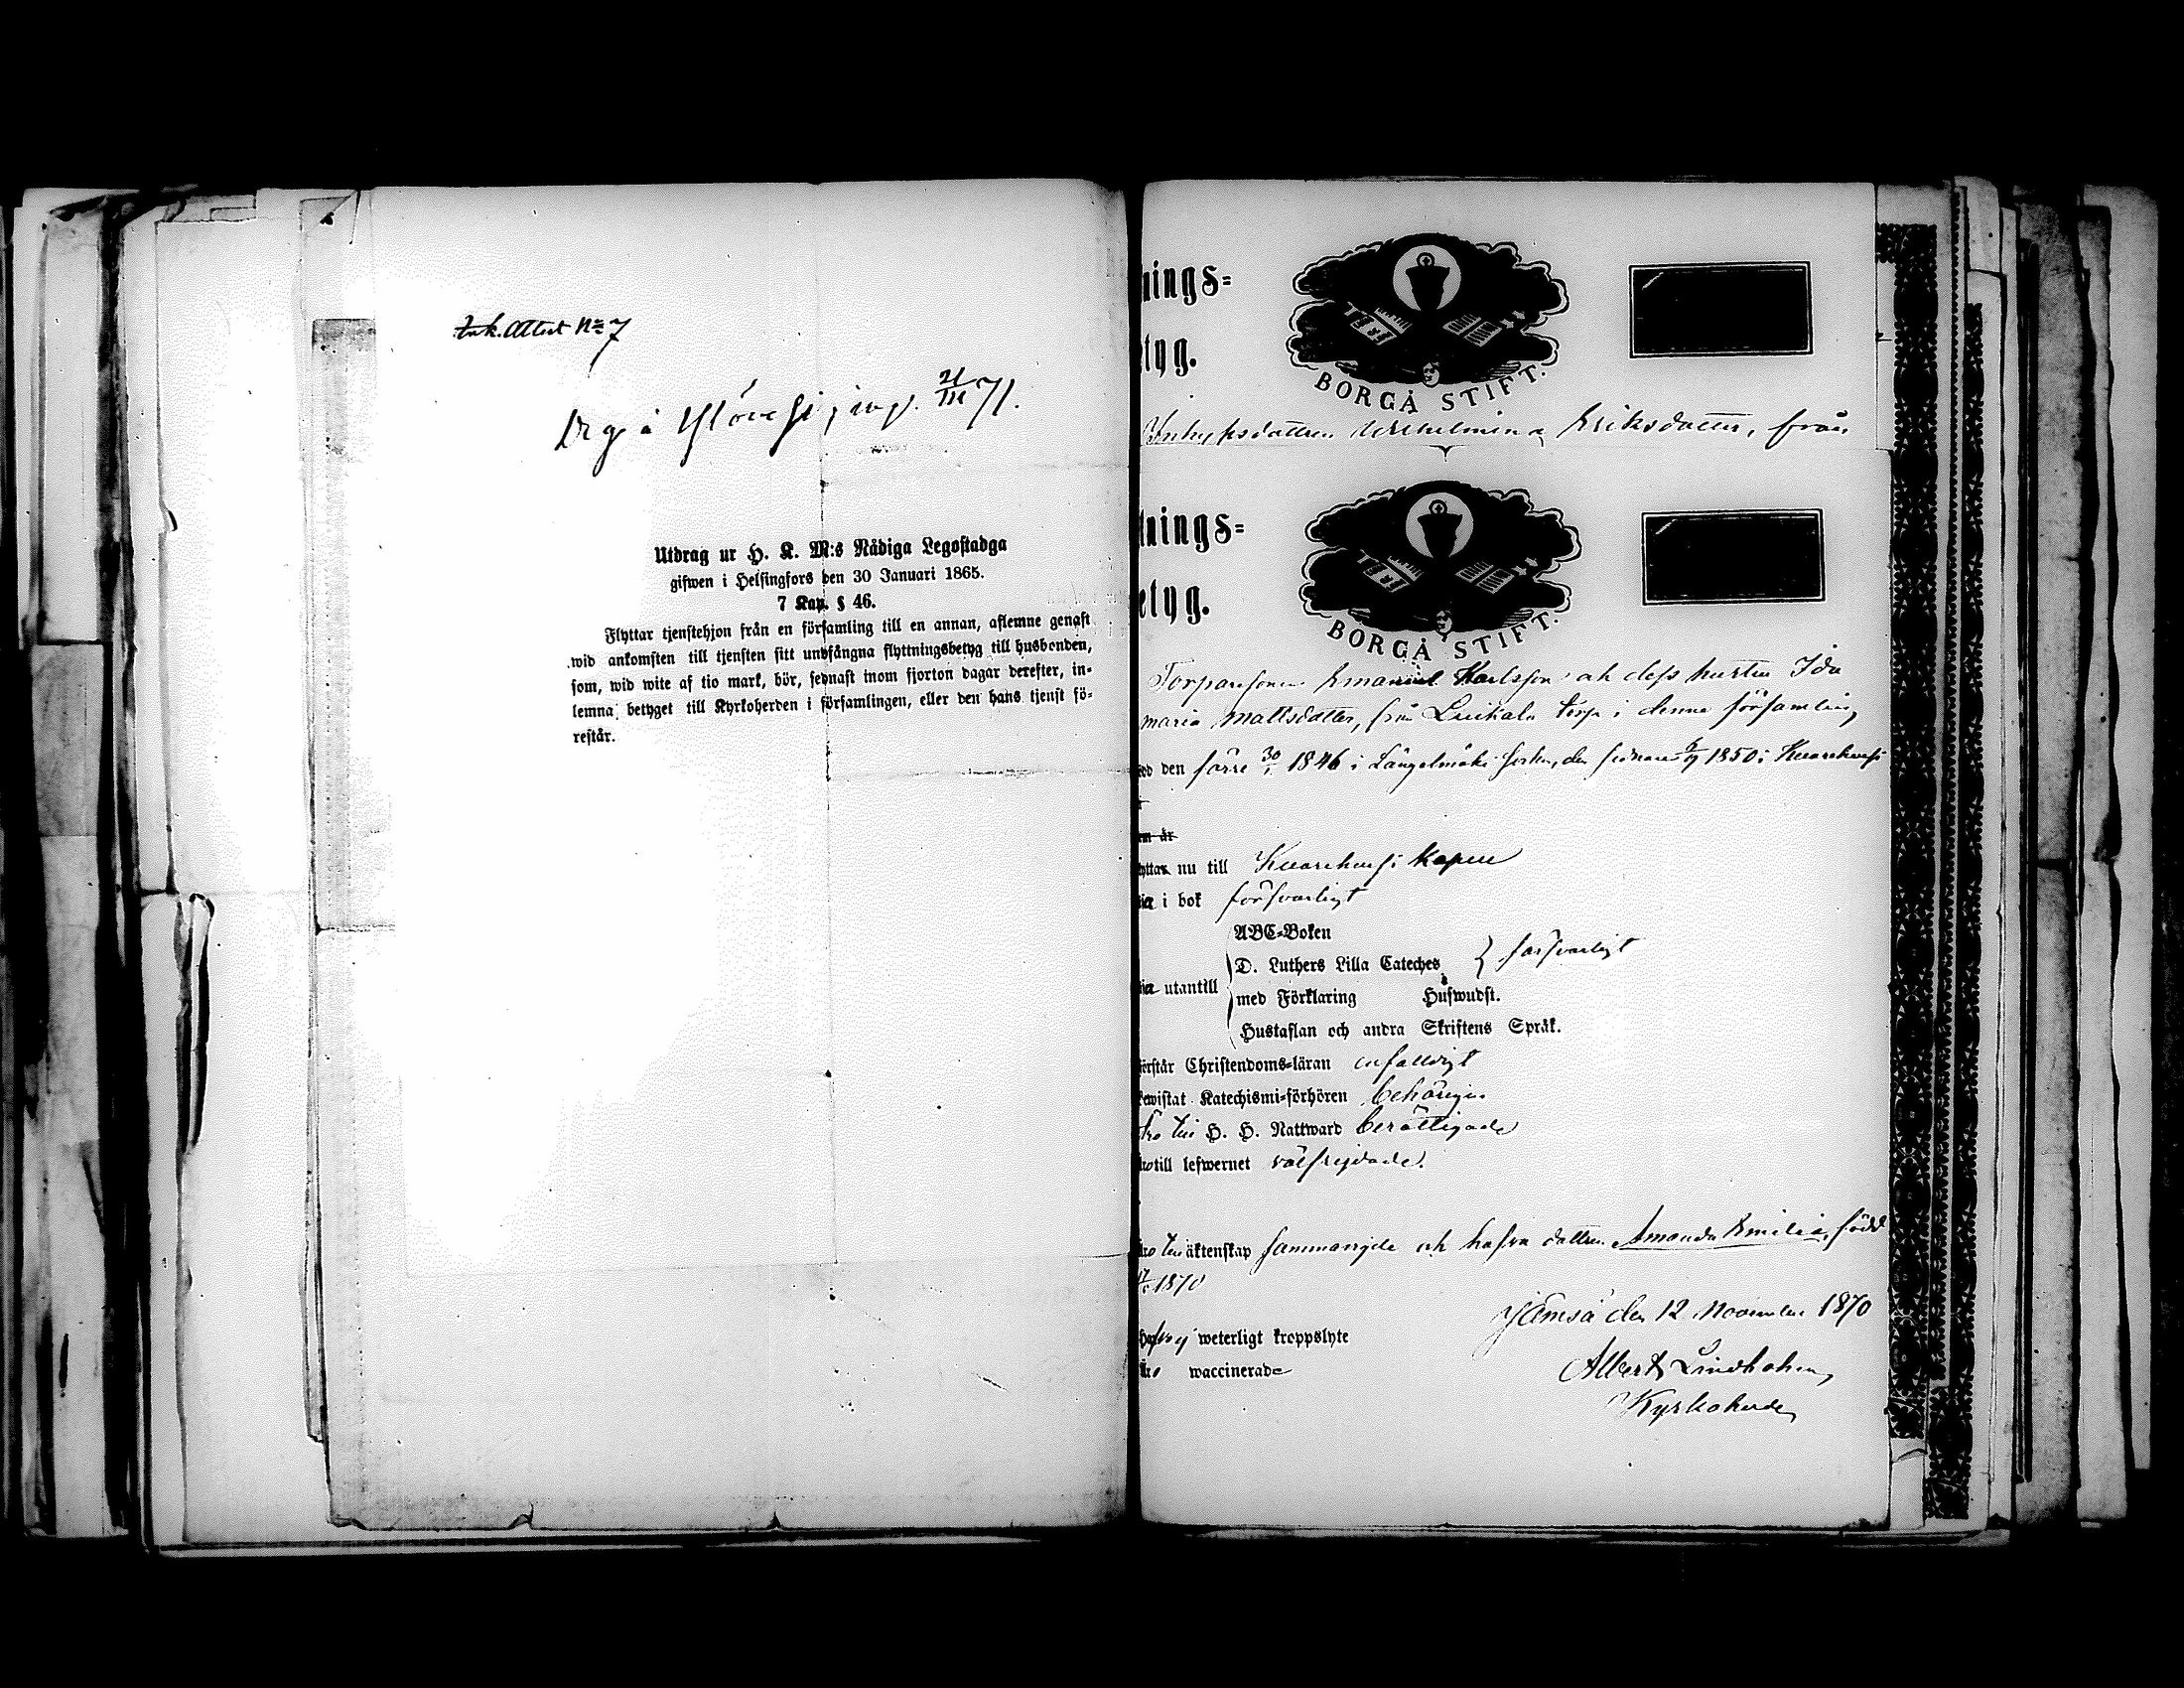 Ink. Attest No 7
Utdrag ur H. K. M:s Nådiga Legostadga
gifwen i Helsingfors den 30 Januari 1865.
7 Kap. § 46.
Flyttar tjenstehjon från en församling till en annan, aflemne genast
wid ankomsten till tjensten sitt undfångna flyttningsbetyg till husbonden,
som, wid wite af tio mark, bör, sednast inom fjorton dagar derefter, in-
lemna betyget till Kyrkoherden i församlingen, eller den hans tjenst fö-
restår.
nings=
tyg.
BORGÅ STIFT.
Inhysesdottren Wilhelmina Eriksdotter, från
tnings=
etyg.
BORGÅ STIFT.
Torparesonen Emanuel Karlsson och dess hustru Ida
Maria Mattsdotter, från Torp i denne församling
den förre 30/1 1846 i Längelmäki socken, den sednare 1850 i
år
nu till Kapell
i bok försvarligt
ABC-Boken
D. Luthers Lilla Cateches } försvarligt
utantill
med Förklaring & Huswudst.
Hustaflan och andra Skriftens Språk.
förstår Christendoms-läran enfaldigt
bewistat Katechismi-förhören behörigen
äro till H. H. Nattward berättigade
äro till lefwernet välfrejdade.
äro till äktenskap sammanvigde och hafva dottren Amanda Emilia, född
1870
Jämsä den 12 November 1870
weterligt kroppslyte
äro waccinerade
Albert Lindholm
Kyrkoherde